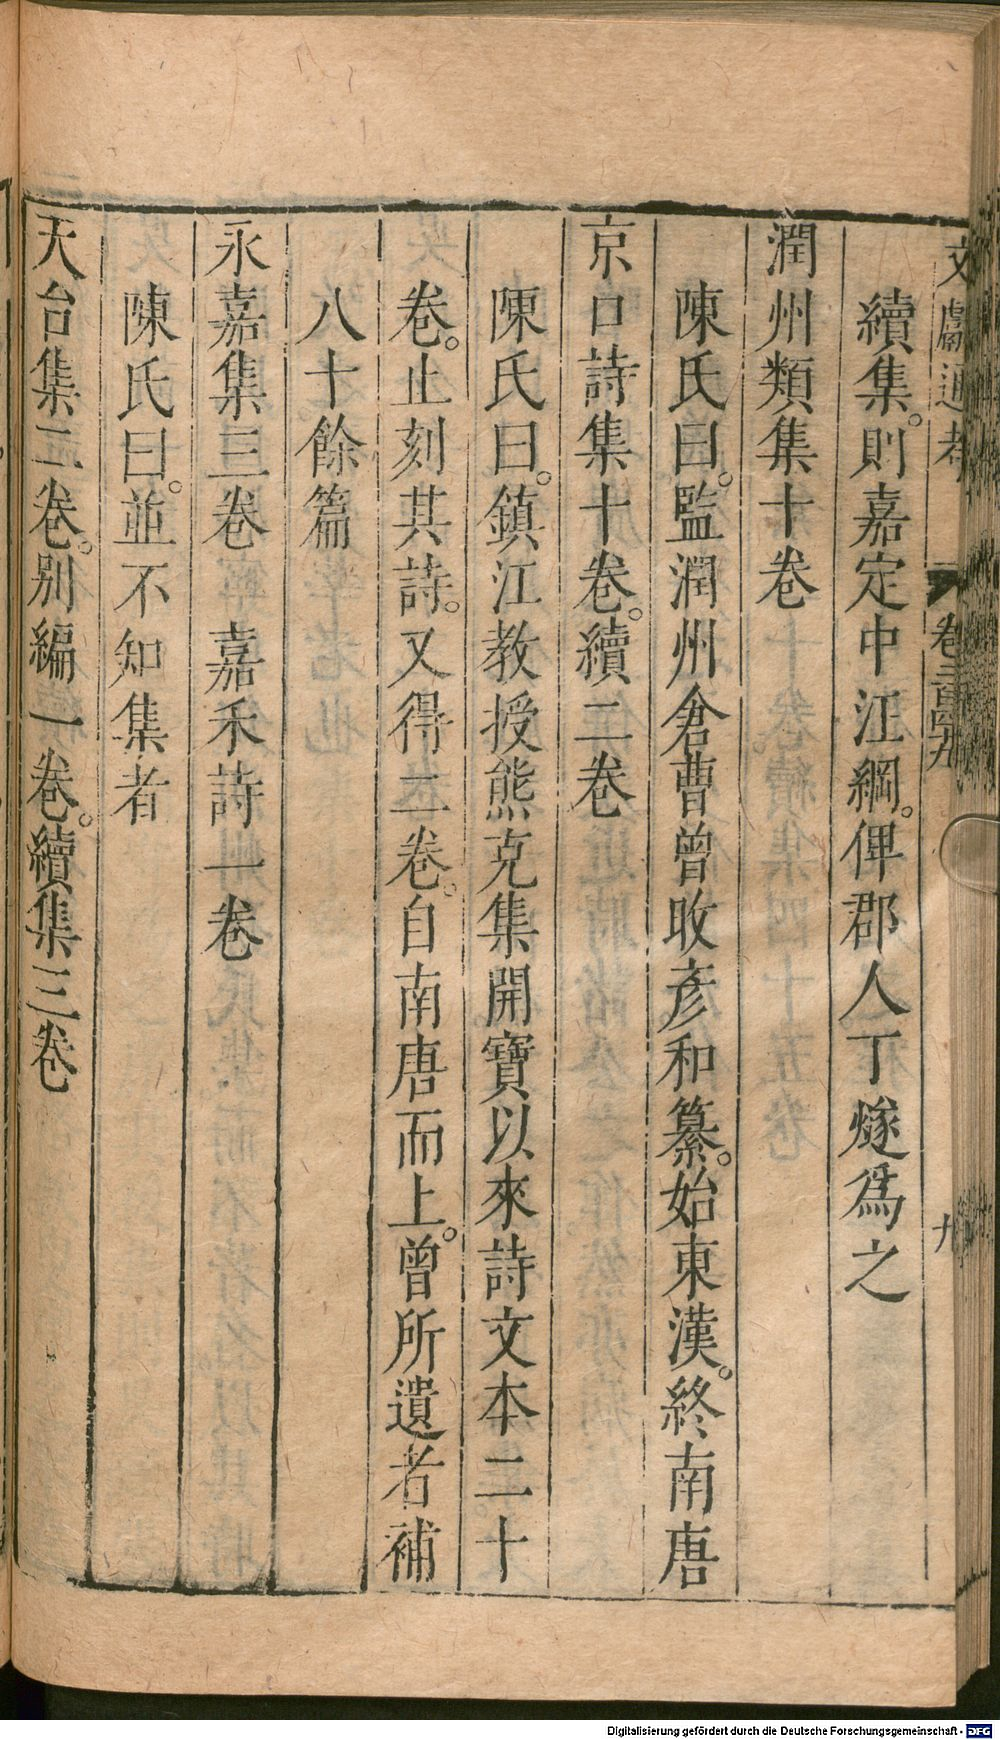 文獻通考 卷二百四九 九
續集。則嘉定中江綱。俾郡人丁燧爲之
潤州類集十卷
陳氏曰。監潤州倉曹曾旼彥和纂。始東漢。終南唐
京口詩集十卷。續二卷
陳氏曰。鎮江教授熊克集開寶以來詩文本二十
卷。止刻其詩。又得二卷。自南唐而上。曾所遺者補
八十餘篇
永嘉集三卷 嘉禾詩一卷
陳氏曰。並不知集者
天台集二卷。別編一卷。續集三卷
Digitalisierung gefördert durch die Deutsche Forschungsgemeinschaft - DFG